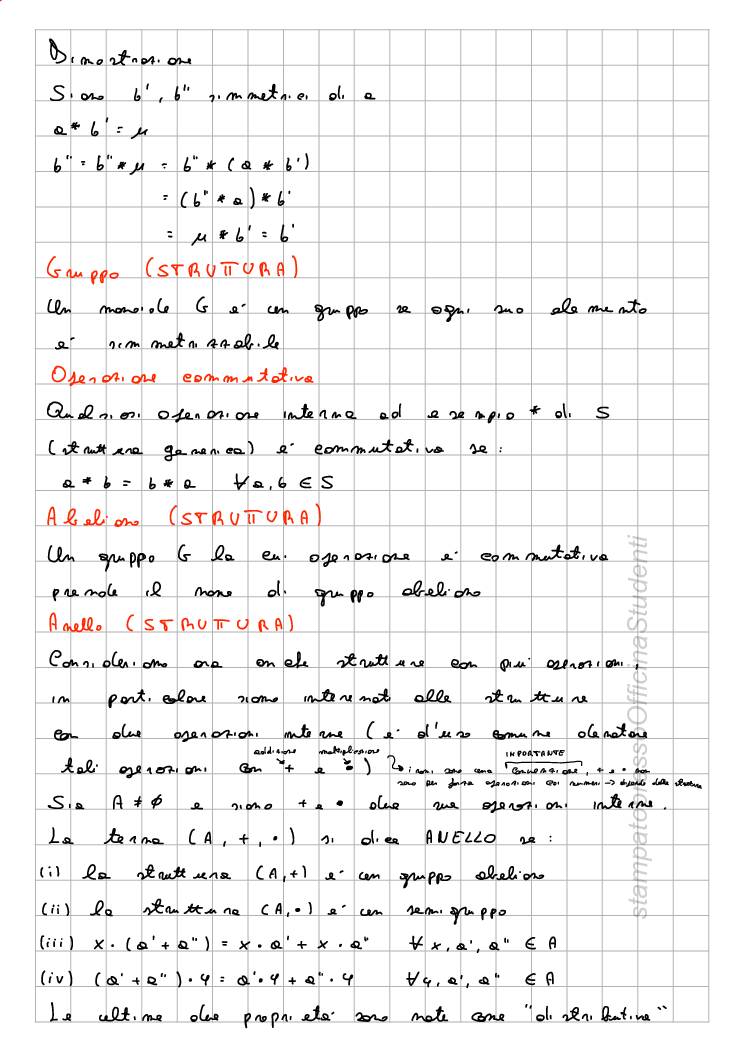 Dimostrazione
Siano b', b'' simmetrici di a
a * b' = μ
b'' = b'' * μ = b'' * (a * b')
= (b'' * a) * b'
= μ * b' = b'
Gruppo (STRUTTURA)
Un monoide G è un gruppo se ogni suo elemento
è simmetrizzabile
Operazione commutativa
Qualsiasi operazione interna ad esempio * di S
(struttura generica) è commutativa se:
a * b = b * a ∀a,b ∈ S
Abeliano (STRUTTURA)
Un gruppo G la cui operazione è commutativa
prende il nome di gruppo abeliano
Anello (STRUTTURA)
Consideriamo ora anche strutture con più operazioni,
in particolare siamo interessati alle strutture
con due operazioni interne (è d'uso comune denotare
addizione moltiplicazione IMPORTANTE
tali operazioni con + e •) ↳ i nomi sono una convenzione, + e • non
sono per forza operazioni coi numeri → dipende dalla struttura
Sia A ≠ ∅ e siano + e • due sue operazioni interne.
La terna (A, +, •) si dice ANELLO se:
(i) la struttura (A,+) è un gruppo abeliano
(ii) la struttura (A,•) è un semigruppo
(iii) x • (a' + a'') = x • a' + x • a'' ∀ x, a', a'' ∈ A
(iv) (a' + a'') • y = a' • y + a'' • y ∀ y, a', a'' ∈ A
Le ultime due proprietà sono note come "distributive"
stampatopressoOfficinaStudenti